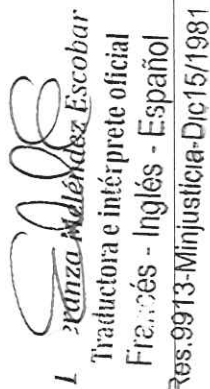 L ranza Meléndez Escobar
Traductora e intérprete oficial
Francés - Inglés - Español
Res.9913-Minjusticia-Dic15/1981